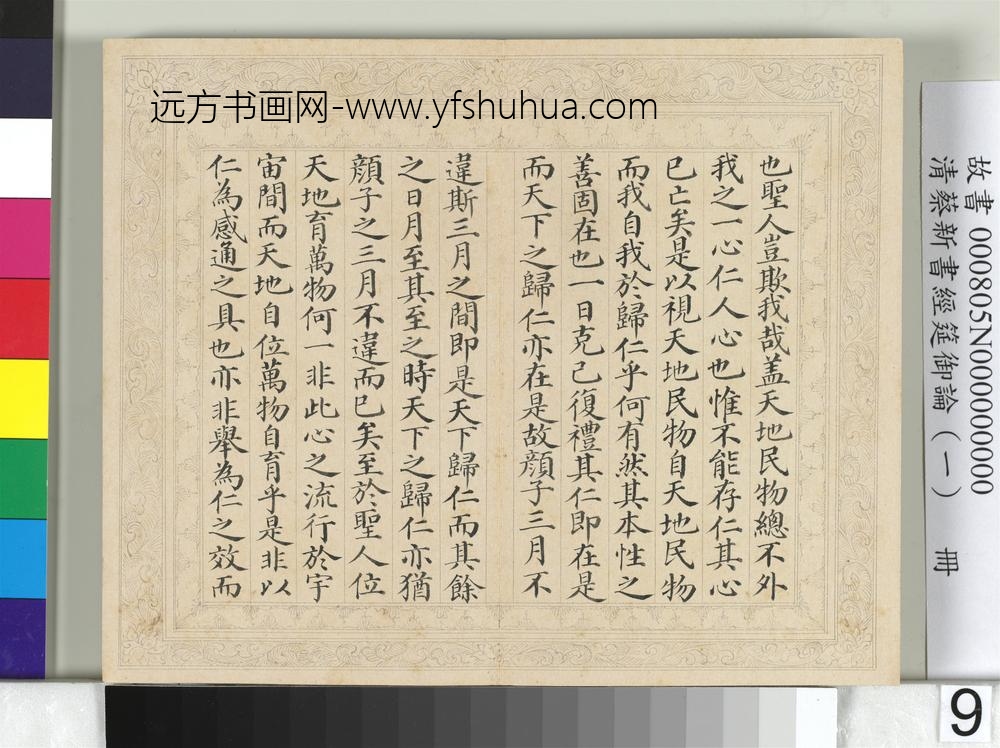 远方书画网-www.yfshuhua.com
也聖人豈欺我哉盖天地民物總不外
我之一心仁人心也惟不能存仁其心
已亡矣是以視天地民物自天地民物
而我自我於歸仁乎何有然其本性之
善固在也一日克己復禮其仁即在是
而天下之歸仁亦在是故顔子三月不
違斯三月之間即是天下歸仁而其餘
之日月至其至之時天下之歸仁亦猶
顔子之三月不違而已矣至於聖人位
天地育萬物何一非此心之流行於宇
宙間而天地自位萬物自育乎是非以
仁為感通之具也亦非舉為仁之效而
故書 000805N000000000
清蔡新書經筵御論(一) 冊
9